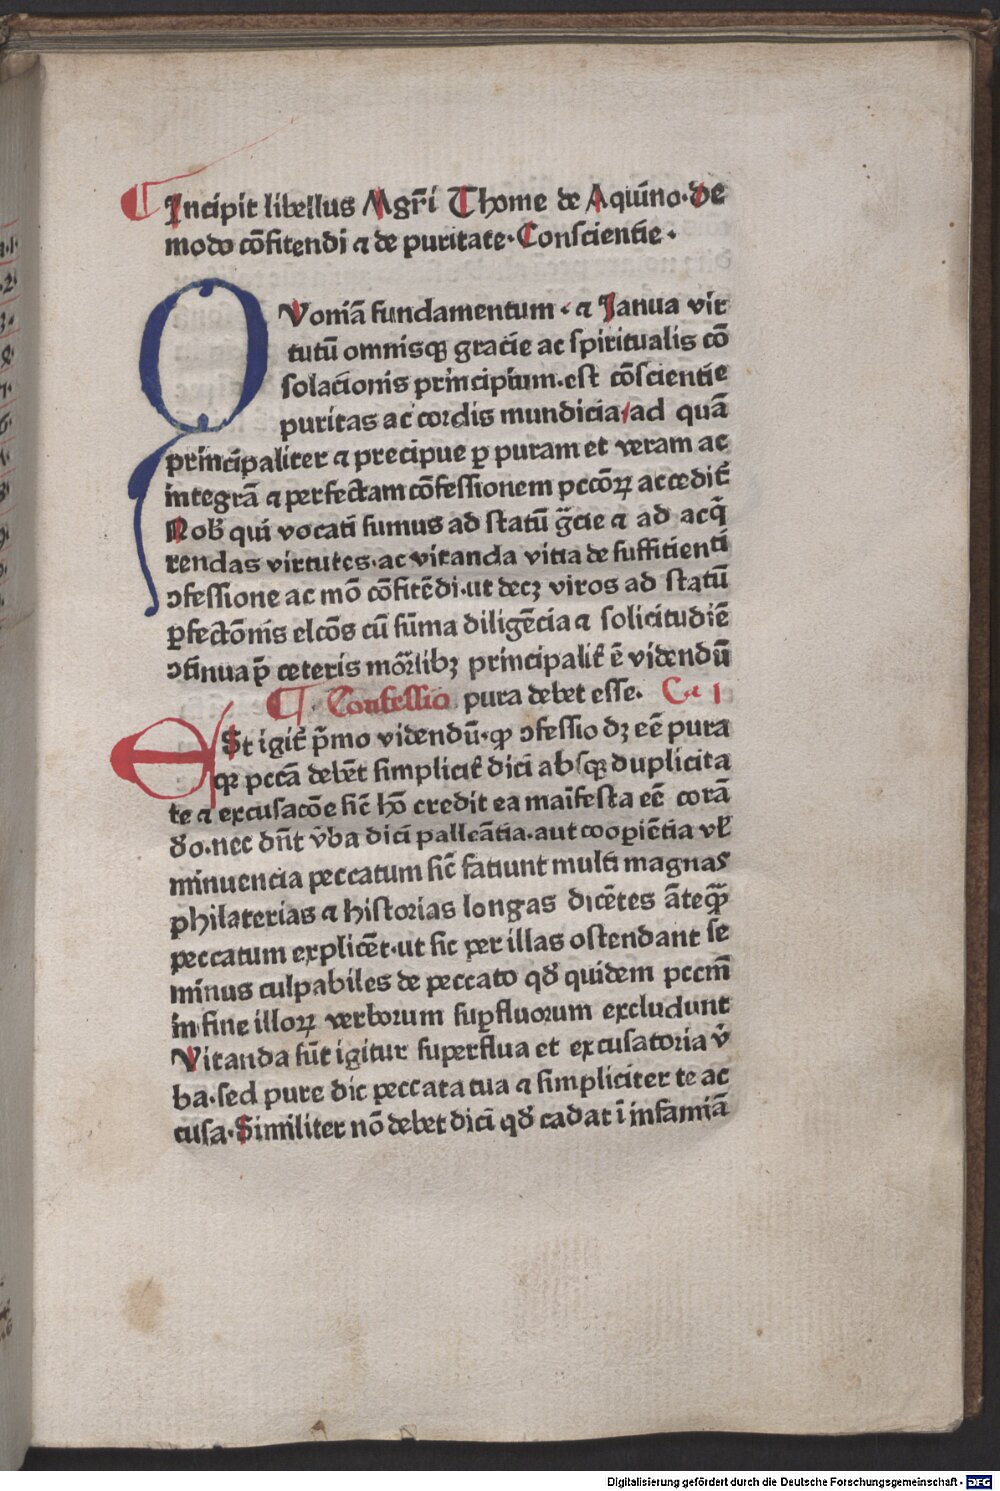 Incipit libellus Mgr̄i Thome de Aquino·de
modo cōfitendi ⁊ de puritate·Conscientie·
QVoniā fundamentum·⁊ Janua vir
tutū omnisqꝫ gracie ac spiritualis cō
solacionis principium·est cōscientie
puritas ac cordis mundicia/ad quā
principaliter ⁊ precipue ꝑ puram et veram ac
integrā ⁊ perfectam cōfessionem pccōꝝ accedit̄
Nob̄ qui vocati sumus ad statū gr̄cie ⁊ ad acq̄
rendas virtutes·ac vitanda vitia de suffitienti
ↄfessione ac mō cōfitēdi·ut decꝫ viros ad statū
ꝑfectōnis elcōs cū sūma diligēcia ⁊ solicitudīe
ↄtinua p̄ ceteris mōr̄libꝫ principalit̄ ē videndū
¶ Confessio pura debet esse. Ca 1
ESt igit̄ p̄mo videndū·ꝙ ↄfessio dꝫ eē pura
qꝛ pccā debēt simplicit̄ dici absqꝫ duplicita
te ⁊ excusacōe sic̄ hō credit ea maīfesta eē corā
deo·nec dn̄t v̄ba dici palleātia·aut coopiētia vl̄
minuencia peccatum sic̄ fatiunt multi magnas
philaterias ⁊ historias longas dicētes āteqꝫ̄
peccatum explicēt·ut sic per illas ostendant se
minus culpabiles de peccato qđ quidem pccm̄
in fine illoꝝ verborum suꝑfluorum excludunt
Vitanda sūt igitur superflua et excusatoria v̄
ba·sed pure dic peccata tua ⁊ simpliciter te ac
cusa·Similiter nō debet dici qđ cadat ī infamiā
Digitalisierung gefördert durch die Deutsche Forschungsgemeinschaft - DFG